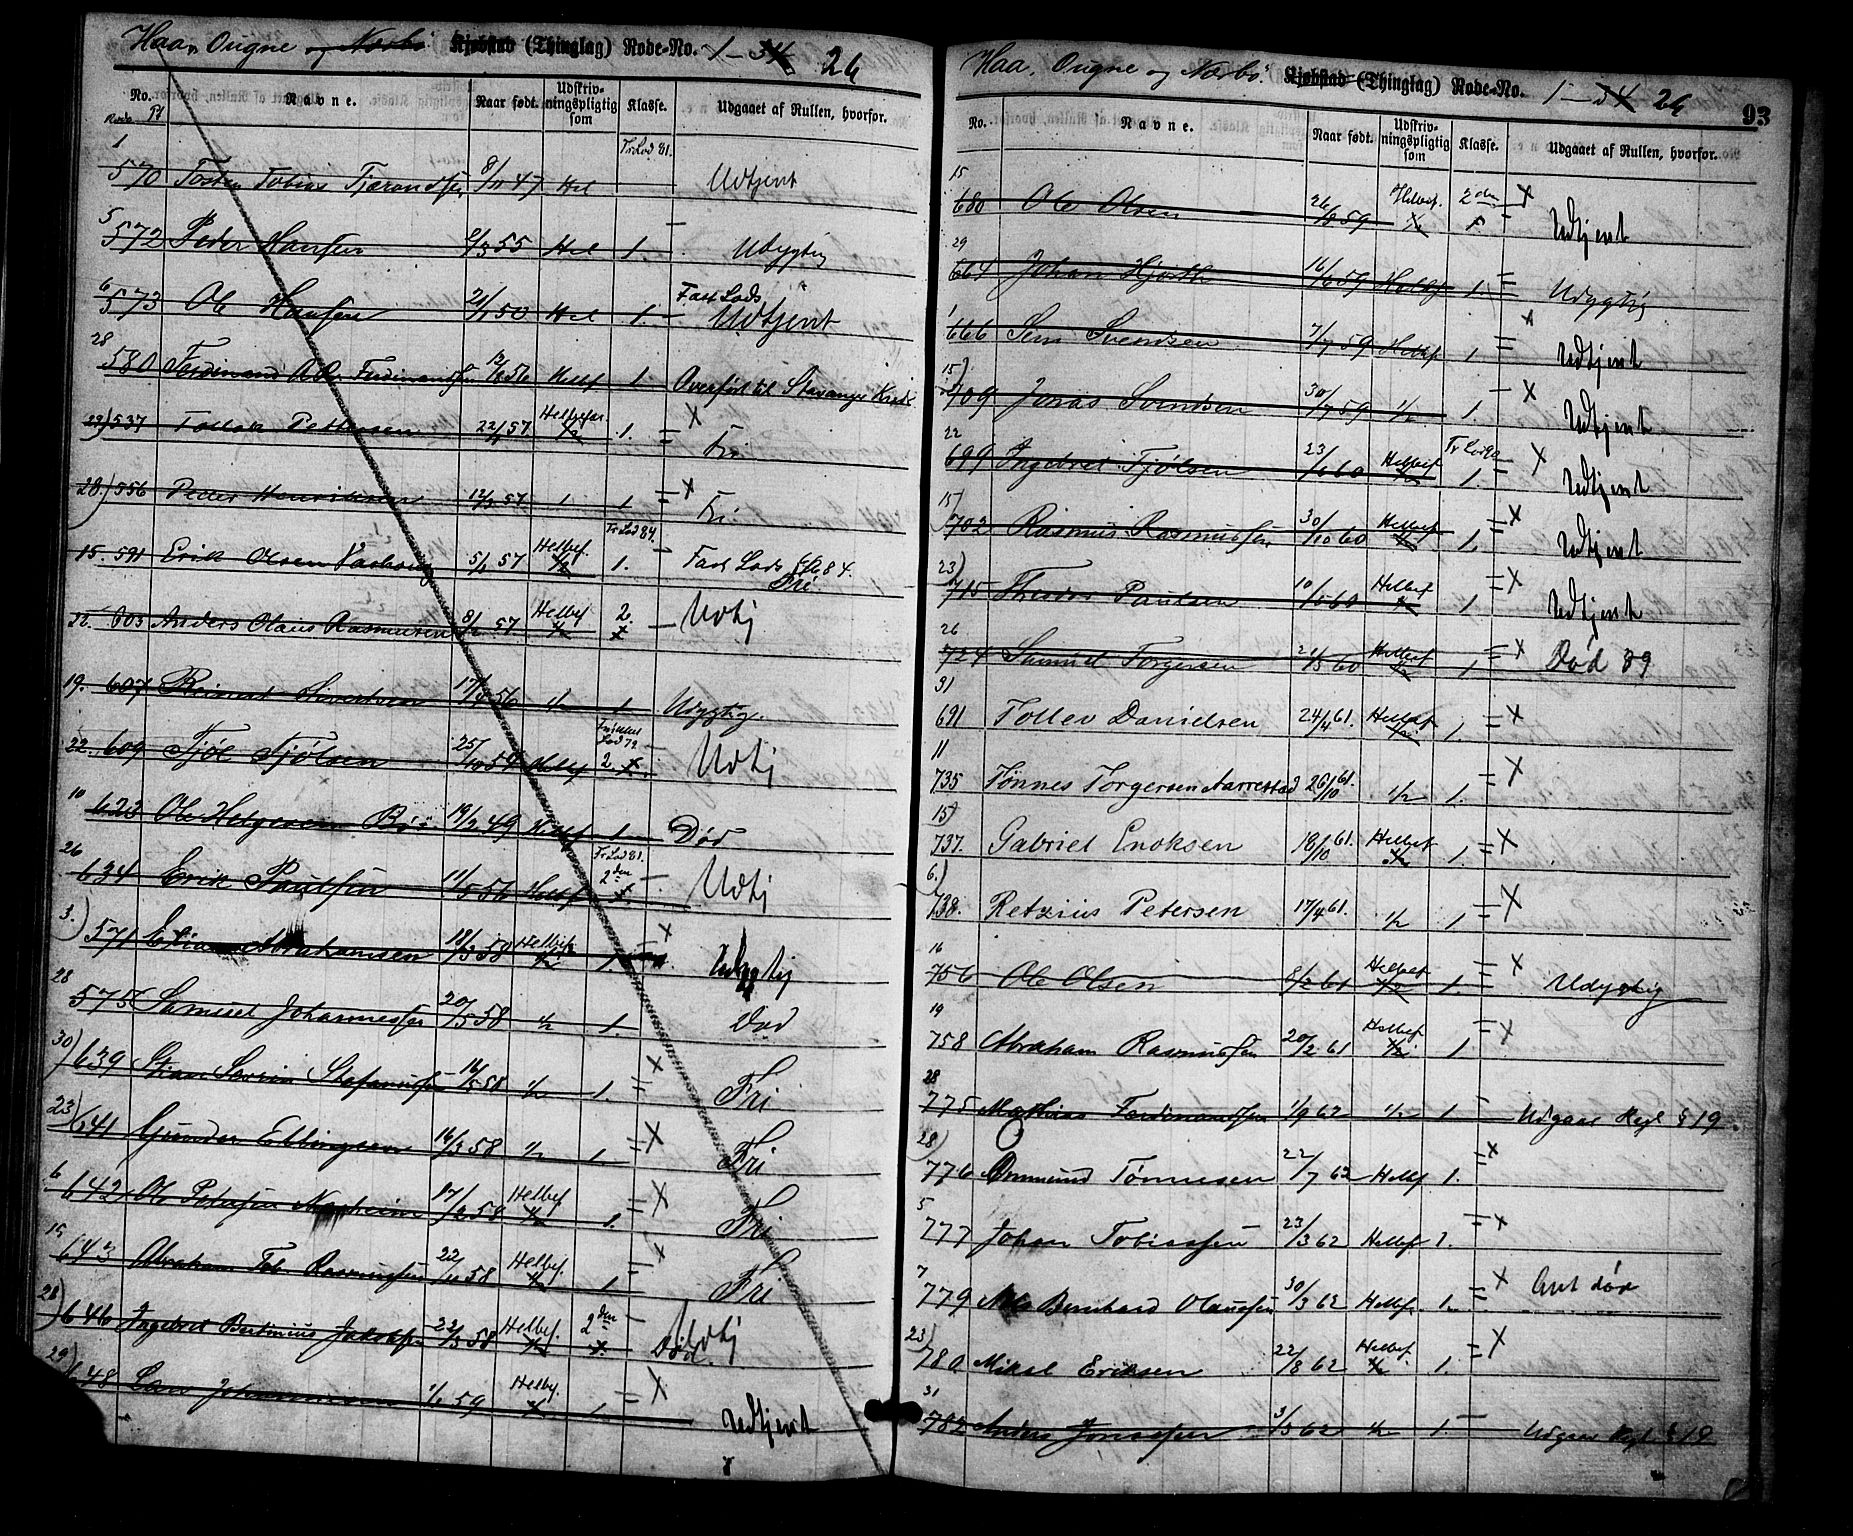 Haa, Ougne og Nærbö Kjøbstad (Thinglag) Rode-No. 1 - 34 26
No. Navne. Naar født. Udskrivningspligtig som Klasse. Udgaaet af Rullen, hvorfor.
1 Tr Lod 81.
570 Tosten Tobias Tjerandsen 8/11 47 Hel Udtjent
5
572 Peder Hansen 6/3 55 Hel 1. Udygtig
6
573 Ole Hansen 21/1 50 Hel 1. Fast Lods Udtjent
28
580 Ferdinand Ferdinandsen 13/8 56 Helbf 1 Overført til Stavanger Kreds
22) 537 Tollak Pettersen 22/11 57. Helbefar. 1/2 1. = X Fri
28) 556 Peder Henriksen 12/3 57. 1 1 = X Fri
15. 591 Erik Olsen Varhoug 5/1 57 Helbef. 1/2 Tr Lod 84. 1. Fast Lods 84. Fri.
22. 603 Anders Olaus Rasmussen 8/2 57 Helbef 2. x Udtj
19. 607 Reinert Sivertsen 17/4 56 1/2 1 Udygtig.
22. 609 Tjöl Tjölsen 25/10 54 Helbf Lod 79 2. x Udtj
10
623 Ole Helgesen Böe 19/2 49 Helbf 1 Død
26
634 Erik Paulsen 11/5 56 Helbf Tr Lod 81. 2den x Udtj
3.)
571 Elias Abrahamsen 18/3 58 Helbef 1/2 1. X Udygtig
28
575 Samuel Johannessen 20/5 58 1/2 1. Død
30)
639 Stian Sörin Stefanusen 16/5 58 1/2 1. = X Fri
23)
641 Gunder Ellingsen 16/3 58 1/2 1 = X Fri
6
642 Ole Petersen Nærheim 17/2 58 Helbef 1/2 1. = X Fri
15
643 Abraham Tob. Rasmussen 22/11 58 Helbef. 1/2 1 = X Fri
28)
646 Ingebret Bertinius Jakobsen 22/3 58 Helbef. 1/2 2den x. Udtj Död.
29)
648 Lars Johannessen 1/6 59 Helbef. 1/2 1. = X Udtjent
Haa, Ougne og Nærbö. Kjøbstad (Thinglag) Rode-No. 1 - 34 26
93
No. Navne. Naar født. Udskrivningspligtig som Klasse. Udgaaet af Rullen, hvorfor.
15
680 Ole Olsen 26/8 59 Helbef. 2den X Udtjent
29
664 Johan Hjorth 16/6 59 Helbf 1. = Udygtig
1
666 Sem Svendsen 7/7 59 Helbf 1 = X Udtjent
15)
709 Jonas Svendsen 30/7 59 1/2 1. X Udtjent
22
699 Ingebret Tjölsen 23/6 60 Helbef 1/2 1. X Udtjent
15)
702 Rasmus Rasmussen 30/10 60 Helbef 1/2 1. = X Udtjent
23)
715 Theodor Paulsen 10/5 60 Helbef 1 = X Udtjent
26
724 Samuel Torgersen 21/5 60 Helbef 1/2 1 = X Död 89
31
691 Tollev Danielsen 24/4 61. Helbef 1. = X
11
735 Tönnes Torgersen Aarrestad 26/10 61. 1/2 1. = X
15)
737. Gabriel Enoksen 18/10 61. Helbef 1. = X
6.)
738. Retzius Petersen 17/4 61. 1/2 1 = X
16
756 Ole Olsen 8/2 61 Helbef 1. = X Udygtig
19
758 Abraham Rasmussen 20/2 61 Helbef 1 = X
28
775 Mathias Ferdinandsen 1/9 62 1/2 1 Udgaar Regl § 19.
28)
776 Ommund Tönnesen 22/7 62 Helbf 1. = X
5
777 Johan Tobiassen 23/3 62 Helbf 1. = X
7
779 Nils Bernhard Olaussen 30/3 62 Helbf. 1. = X Ant död
23)
780. Mikal Eriksen 22/8 62 Helbef. 1/2 1. = X
31
782 Anders Jonassen 3/5 62 1/2 1. Udgaar Regl § 19